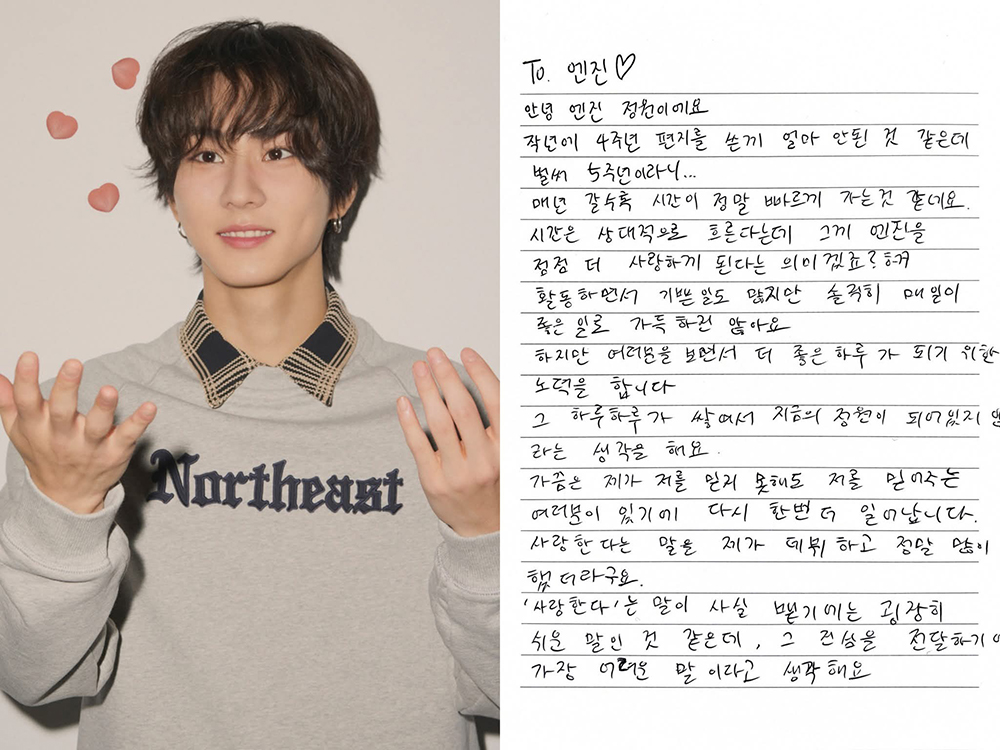 Northeast
To. 엔진♡
안녕 엔진 정원이에요
작년에 4주년 편지를 쓴게 얼마 안된 것 같은데
벌써 5주년이라니...
매년 갈수록 시간이 정말 빠르게 가는것 같네요.
시간은 상대적으로 흐른다는데 그게 엔진을
점점 더 사랑하게 된다는 의미겠죠? ㅎㅎ
활동하면서 기쁜일도 많지만 솔직히 매일이
좋은 일로 가득하진 않아요
하지만 여러분을 보면서 더 좋은 하루가 되기 위한
노력을 합니다
그 하루하루가 쌓여서 지금의 정원이 되어있지 않
라는 생각을 해요.
가끔은 제가 저를 믿지 못해도 저를 믿어주는
여러분이 있기에 다시 한번 더 일어납니다.
사랑한다는 말을 제가 데뷔하고 정말 많이
했더라구요.
'사랑한다'는 말이 사실 뱉기에는 굉장히
쉬운 말인 것 같은데, 그 진심을 전달하기에
가장 어려운 말이라고 생각해요